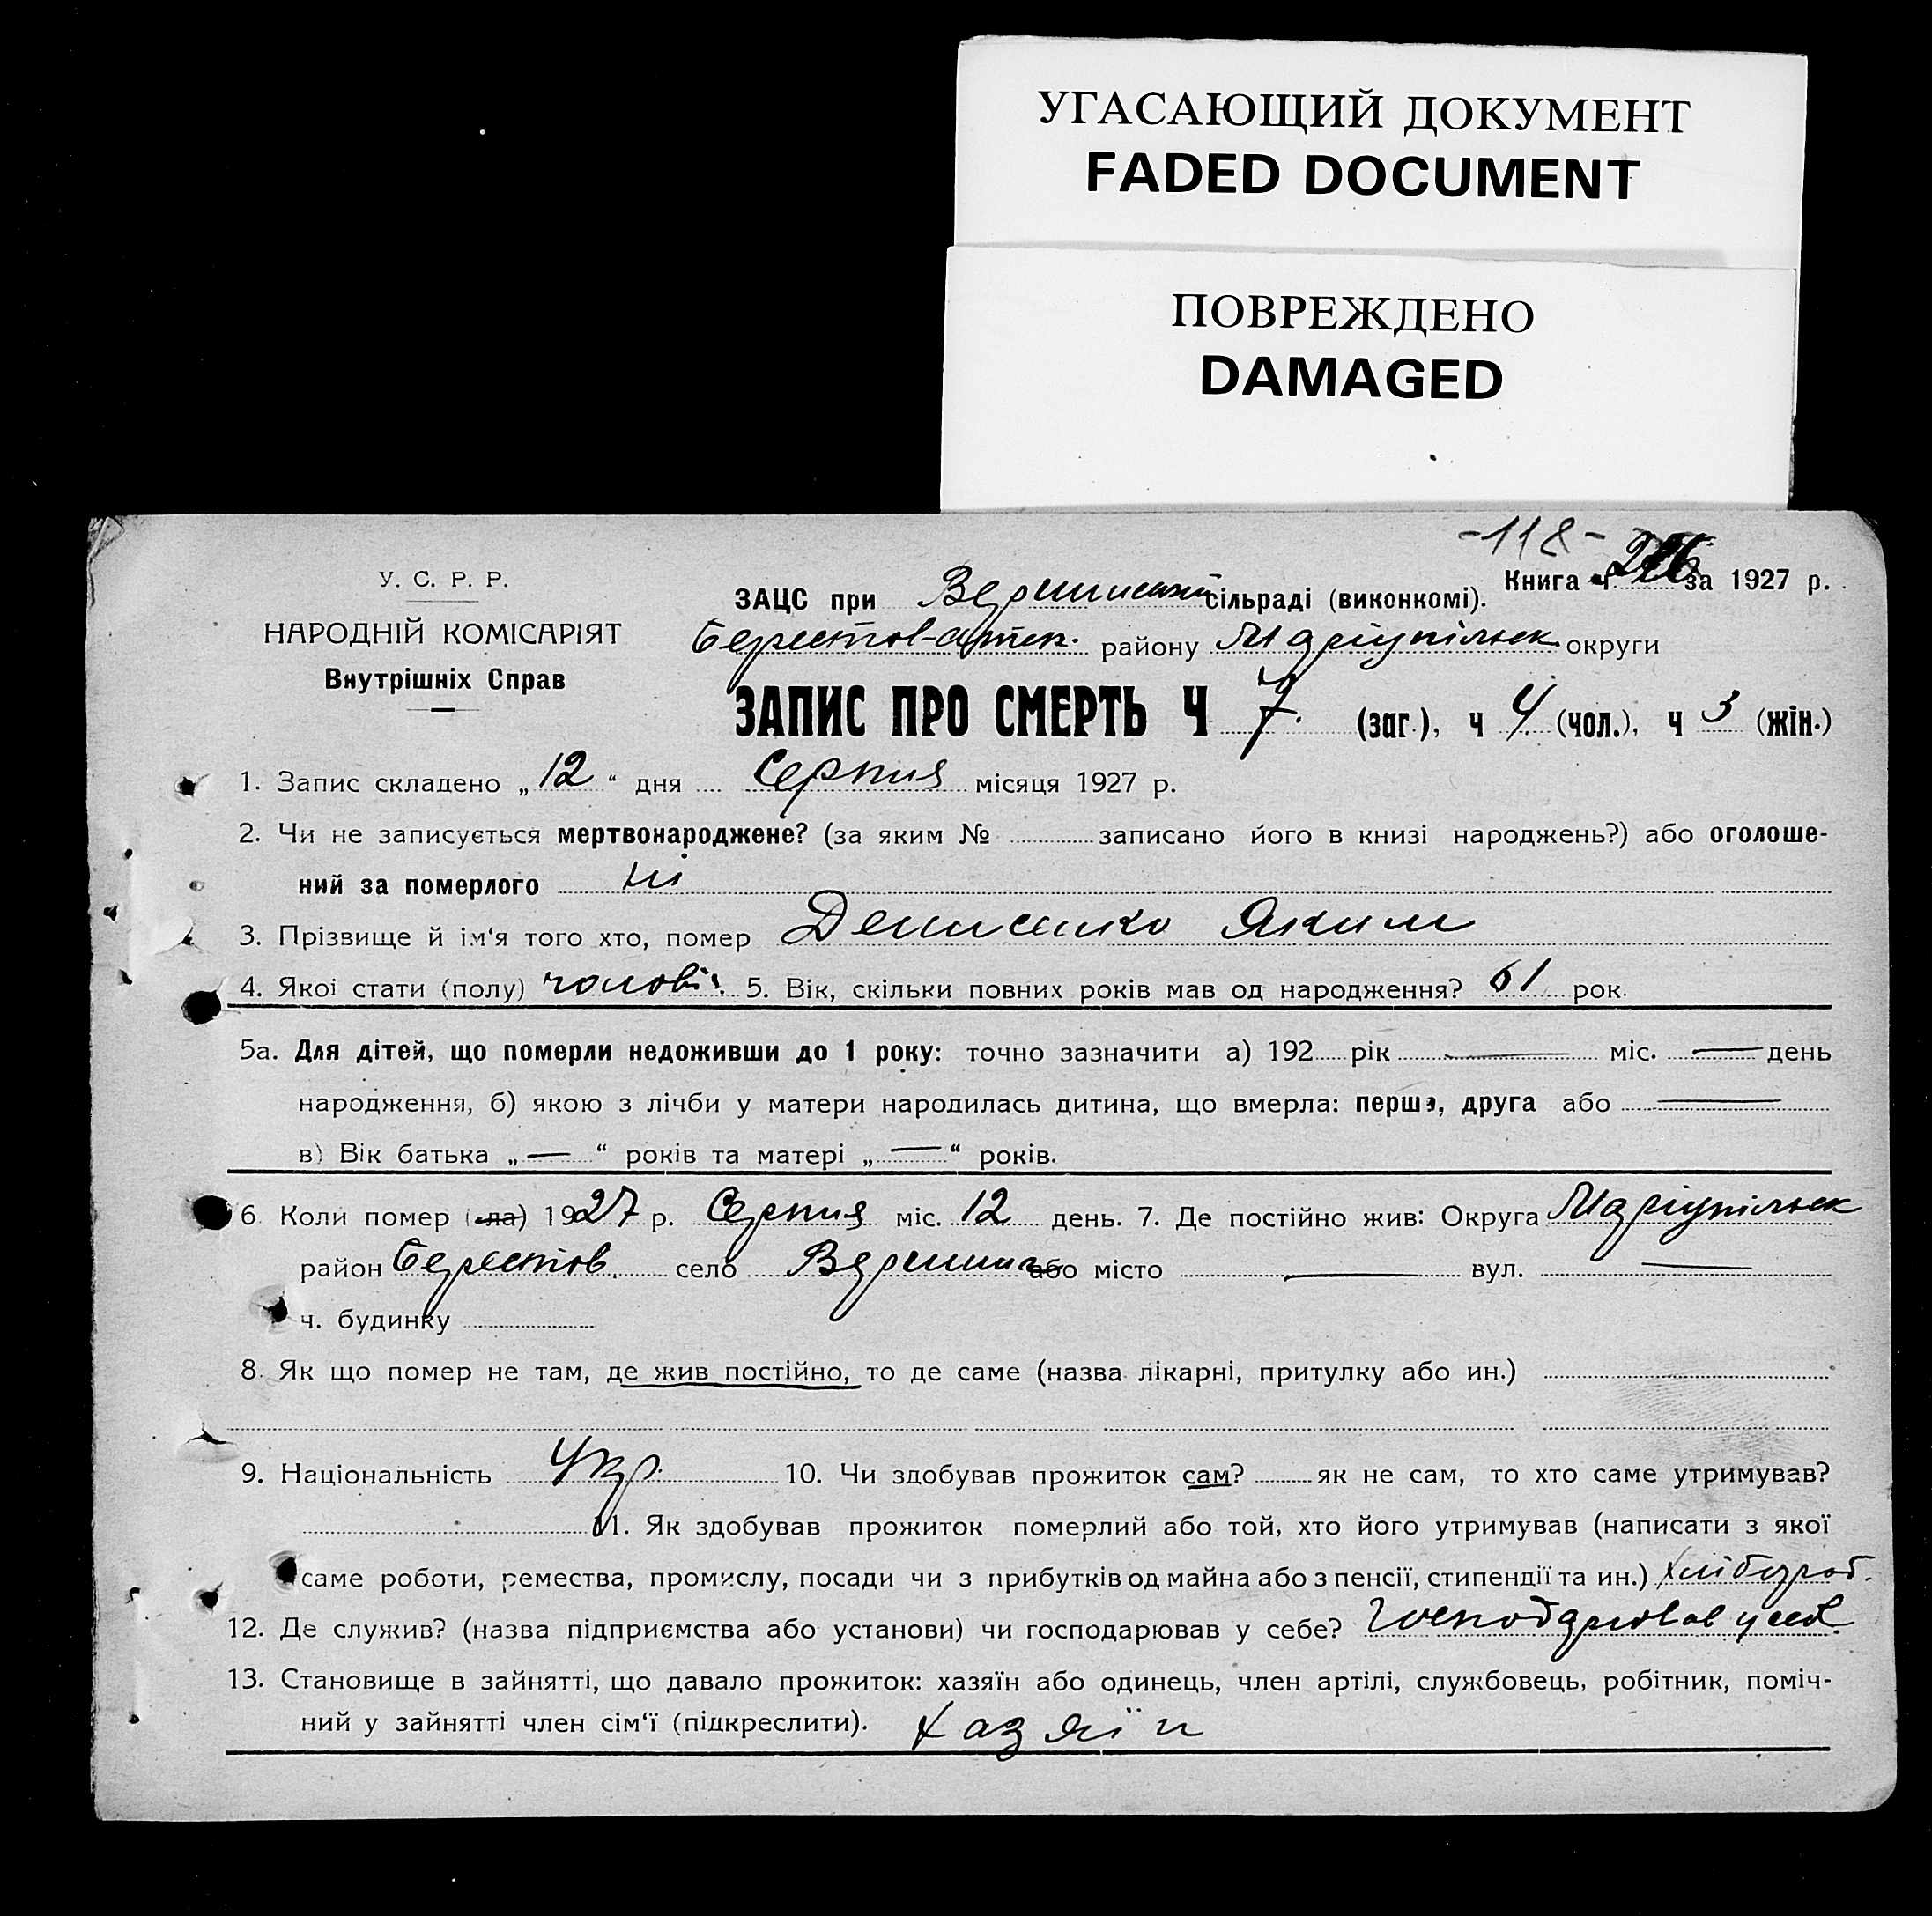 УГАСАЮЩИЙ ДОКУМЕНТ
FADED DOCUMENT
ПОВРЕЖДЕНО
DAMAGED
-118-
У. С. Р. Р.
НАРОДНІЙ КОМІСАРІЯТ
Внутрішніх Справ
Книга ч за 1927 р.
ЗАЦС при сільраді (виконкомі).
району Маріупільск округи
ЗАПИС ПРО СМЕРТЬ Ч 7. (заг.), ч 4 (чол.), ч 3 (жін.)
1. Запис складено „12“ дня Серпня місяця 1927 р.
2. Чи не записується мертвонароджене? (за яким № записано його в книзі народжень?) або оголоше-
ний за померлого ні
3. Прізвище й ім‘я того хто, помер Денисенко Яким
4. Якої стати (полу) чоловіч. 5. Вік, скільки повних років мав од народження? 61 рок.
5а. Для дітей, що померли недоживши до 1 року: точно зазначити а) 192 рік — міс. — день
народження, б) якою з лічби у матери народилась дитина, що вмерла: перша, друга або —
в) Вік батька „—“ років та матері „—“ років.
6. Коли помер (-ла) 1927 р. Серпня міс. 12 день. 7. Де постійно жив: Округа Маріупільск
район Берестов. село або місто — вул. —
ч. будинку
8. Як що помер не там, де жив постійно, то де саме (назва лікарні, притулку або ин.)
9. Національність Укр. 10. Чи здобував прожиток сам? як не сам, то хто саме утримував?
11. Як здобував прожиток померлий або той, хто його утримував (написати з якої
саме роботи, ремества, промислу, посади чи з прибутків од майна або з пенсії, стипендії та ин.) хлібороб.
12. Де служив? (назва підприємства або установи) чи господарював у себе? Господарював у себе.
13. Становище в зайнятті, що давало прожиток: хазяїн або одинець, член артілі, службовець, робітник, поміч-
ний у зайнятті член сім‘ї (підкреслити). хазяїн